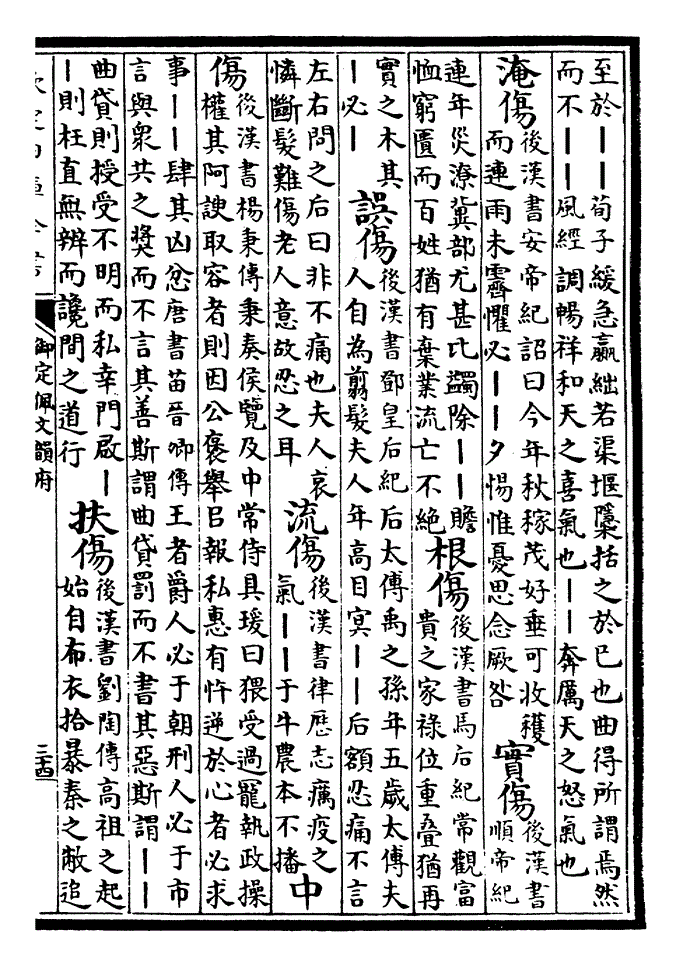 至於丨丨荀子緩急嬴絀若渠堰檃括之於已也曲得所謂焉然
而不丨丨風經調暢祥和天之喜氣也丨丨奔厲天之怒氣也
淹傷
後漢書安帝紀詔曰今年秋稼茂好垂可收穫
而連雨未霽懼必丨丨夕惕惟憂思念厥咎
實傷
後漢書
順帝紀
連年災潦冀部尤甚比蠲除丨丨贍
恤窮匱而百姓猶有棄業流亡不絶
根傷
後漢書馬后紀常觀富
貴之家祿位重疊猶再
實之木其
丨必丨
誤傷
後漢書鄧皇后紀后太傅禹之孫年五歲太傅夫
人自為翦髮夫人年高目冥丨丨后額忍痛不言
左右問之后曰非不痛也夫人哀
憐斷髮難傷老人意故忍之耳
流傷
後漢書律厯志癘疫之
氣丨丨于牛農本不播
中
傷
後漢書楊秉傳秉奏侯覽及中常侍具瑗曰猥受過寵執政操
權其阿諛取容者則因公褒舉㠯報私惠有忤逆於心者必求
事丨丨肆其凶忿唐書苗晉卿傳王者爵人必于朝刑人必于市
言與衆共之奬而不言其善斯謂曲貸罰而不書其惡斯謂丨丨
曲貸則授受不明而私幸門啟丨
丨則枉直無辨而讒間之道行
扶傷
後漢書劉陶傳高祖之起
始自布衣拾暴秦之敝追
御定佩文韻府